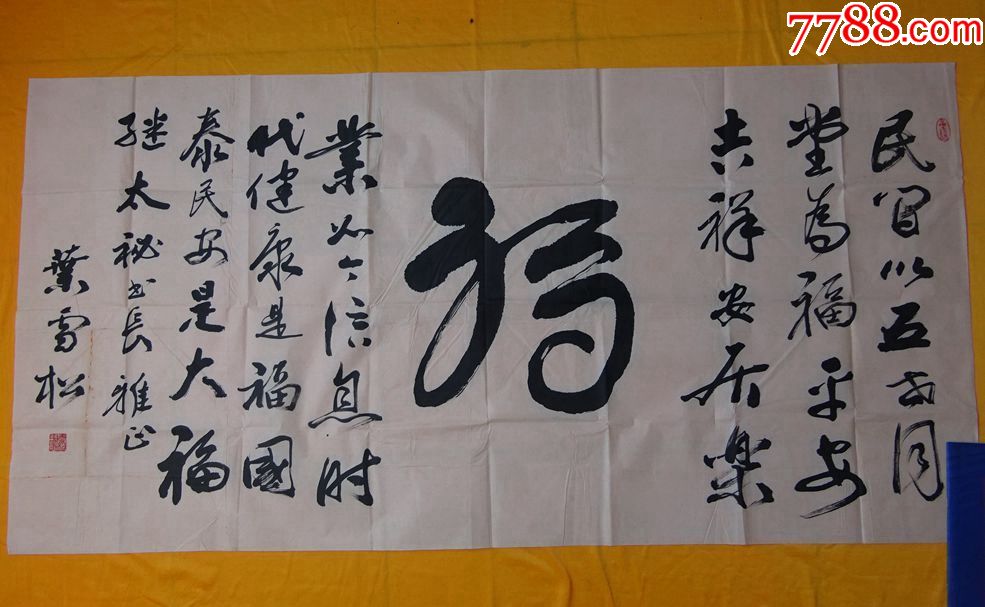 7788.com
民间以五世同
堂為福平安
吉祥安居樂
福
業如今信息时
代健康是福國
泰民安是大福
继太秘书長雅正
葉雪松